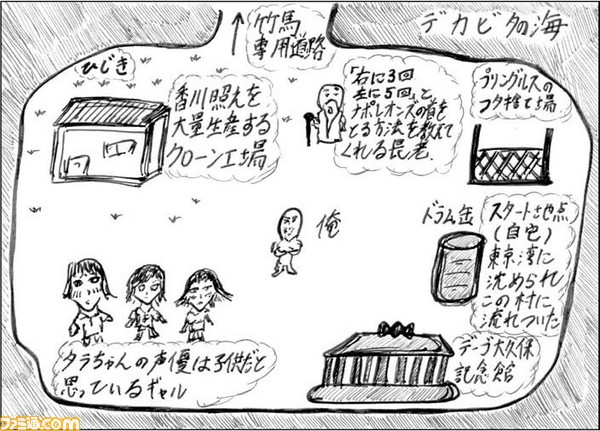 デカビタの海
竹馬
専用道路
ひじき
香川照之を
大量生産する
クローン工場
「右に3回
左に5回」と、
ナポレオンズの首を
とる方法を教えて
くれる長老.
プリングルスの
フタ捨て場
俺
ドラム缶
スタート地点
(自宅)
東京湾に
沈められ
この村に
流れついた
タラちゃんの声優は子供だと
思っているギャル
デーブ大久保
記念館
ファミ通.com